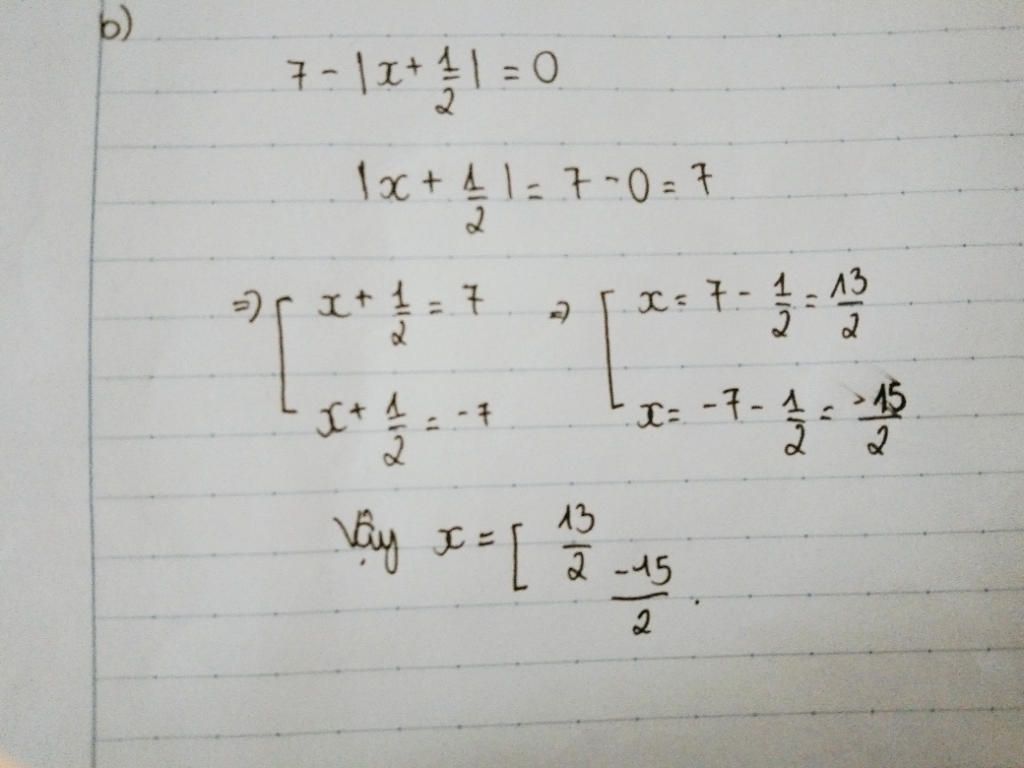 b)
7 - |x + 1/2| = 0
|x + 1/2| = 7 - 0 = 7
=> [ x + 1/2 = 7 => [ x = 7 - 1/2 = 13/2
x + 1/2 = -7 x = -7 - 1/2 = -15/2
Vậy x = [ 13/2 -15/2 .